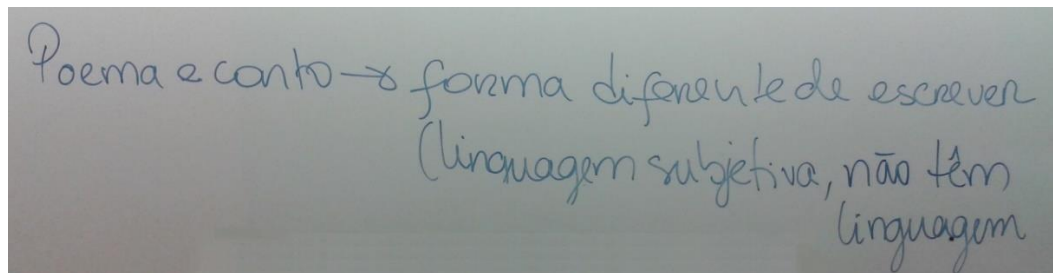 Poema e conto → forma diferente de escrever
(linguagem subjetiva, não têm
linguagem